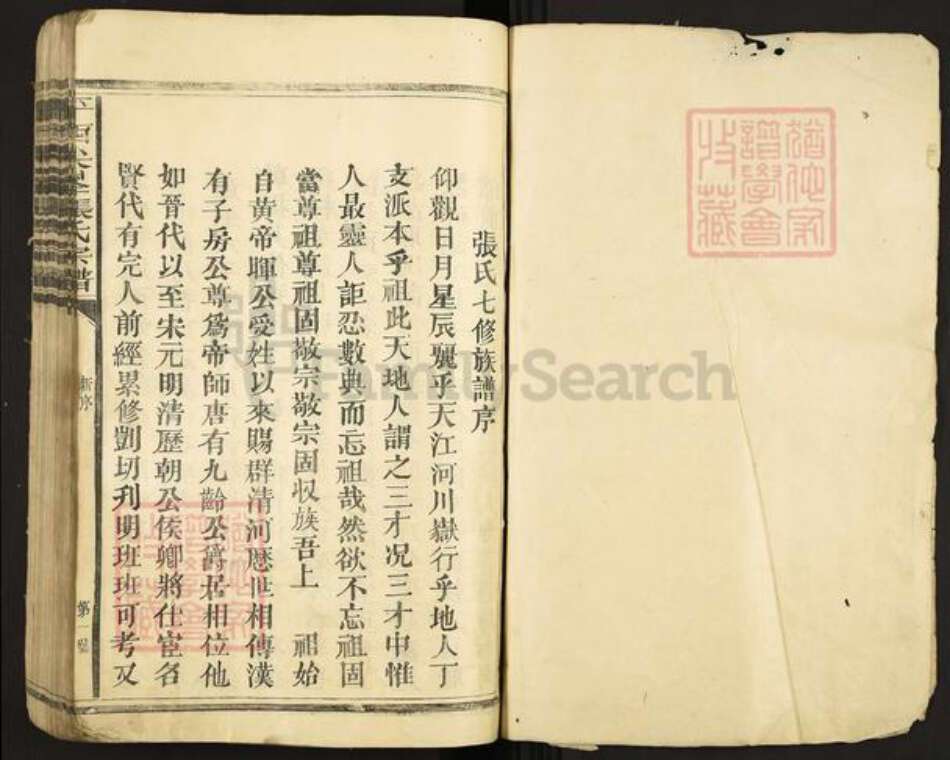 猶他家譜學會收藏
張氏七修族譜序
仰觀日月星辰麗乎天江河川嶽行乎地人丁
支派本乎祖此天地人謂之三才况三才中惟
人最靈人詎忍數典而忘祖哉然欲不忘祖固
當尊祖尊祖固敬宗敬宗固収族吾上 祖始
自黃帝暉公受姓以來賜群清河歷世相傳漢
有子房公尊爲帝師唐有九齡公爵居相位他
如晉代以至宋元明清歷朝公侯卿將仕宦名
賢代有完人前經累修剴切刋明班班可考又
張氏宗譜
新序
第一
FamilySearch